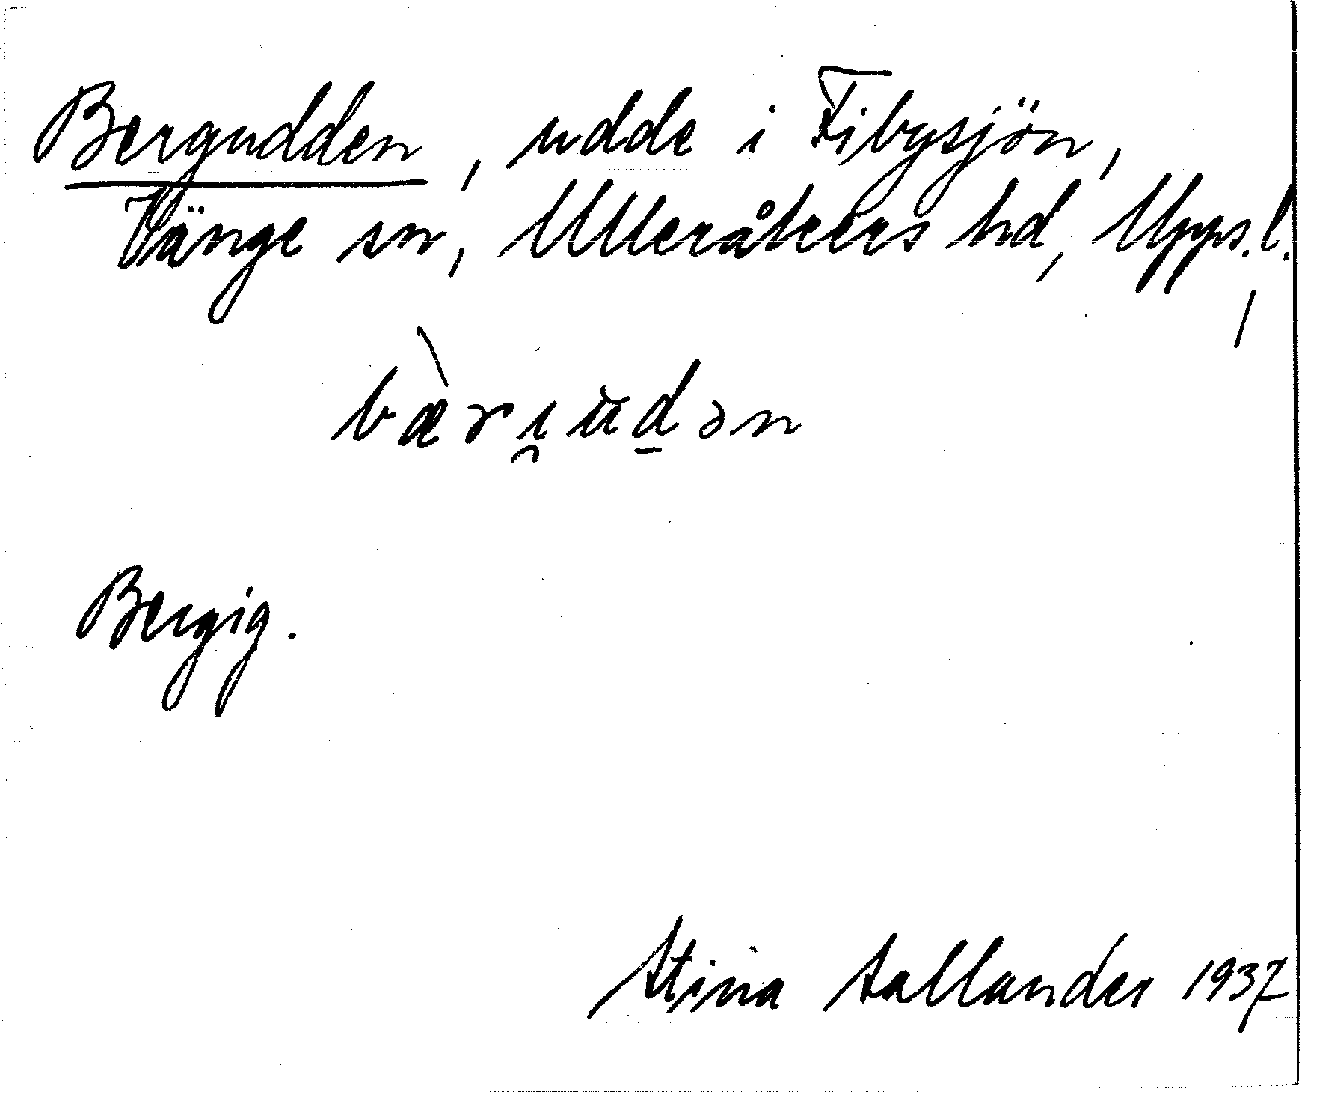 Bergudden, udde i Fibysjön,
Vänge sn, Ulleråkers hd, Upps. l.
bæ̀rı̯ŭd̠ən
Bergig.
Stina Sallander 1937